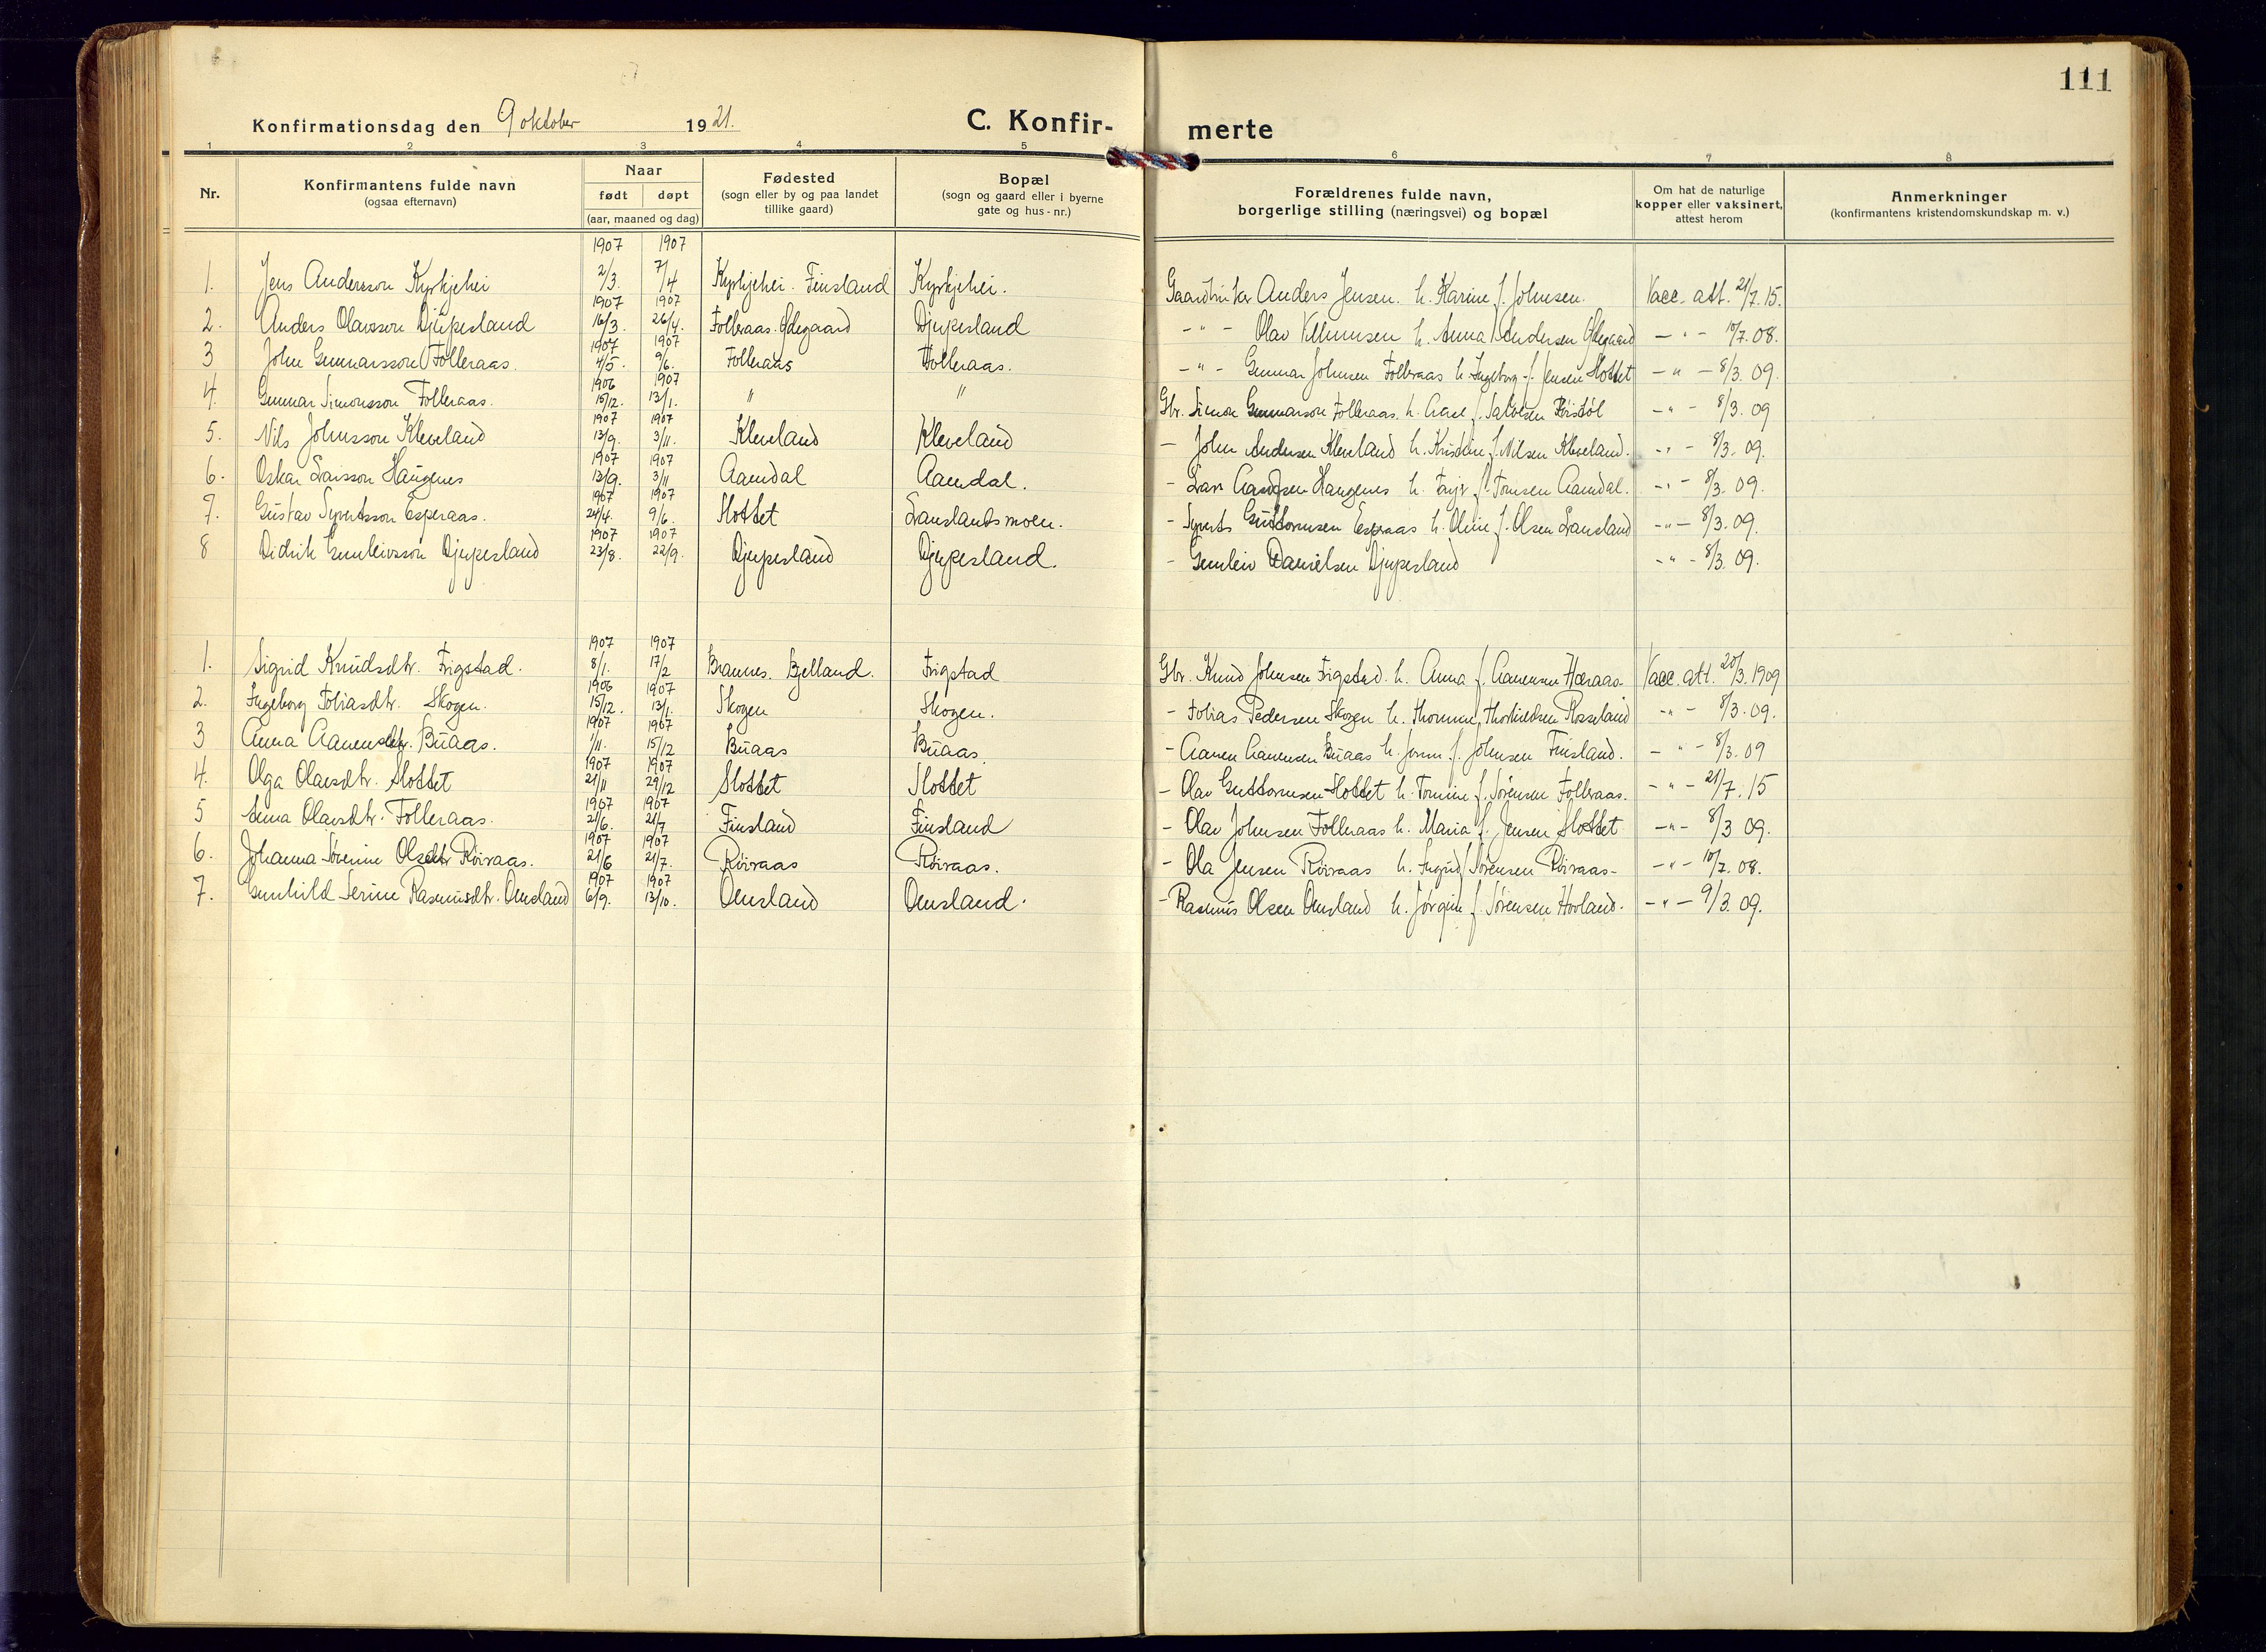 111
Konfirmationsdag den 9 oktober 1921. C. Konfir- merte
1 2 3 4 5 6 7 8
Nr. Konfirmantens fulde navn (ogsaa efternavn) Naar født døpt (aar, maaned og dag) Fødested (sogn eller by og paa landet tillike gaard) Bopæl (sogn og gaard eller i byerne gate og hus-nr.) Forældrenes fulde navn, borgerlige stilling (næringsvei) og bopæl Om hat de naturlige kopper eller vaksinert, attest herom Anmerkninger (konfirmantens kristendomskundskap m. v.)
1. Jens Andersson Kyrkjehei 1907 2/3. 1907 7/4 Kyrkjehei. Finsland Kyrkjehei. Gaardbruker Anders Jensen. h. Karine f. Johnsen. Vacc. att. 21/7. 15.
2. Anders Olavsson Djupesland 1907 16/3. 1907 26/4. Folleraas. Ødegaard Djupesland - " - Olav h. Anna Andersen Ødegaard - " - 10/7. 08.
3 John Gunnarsson Folleraas. 1907 4/5. 1907 9/6. Folleraas Folleraas. - " - Gunnar Johnsen Folleraas h. Ingeborg f. Jensen Slottet - " - 8/3. 09.
4. Gunnar Simonsson Folleraas. 1906 15/12. 1907 13/1. " " Gbr. Simon Gunnarson Folleraas. h. Aase f. Salvesen - " - 8/3. 09
5. Nils Johnsson Kleveland 1907 13/9. 1907 3/11. Kleveland Kleveland - John Andersen Kleveland h. Kristine f. Nilsen Kleveland. - " - 8/3. 09.
6. Oskar Larsson Haugenes 1907 13/9. 1907 3/11 Aamdal Aamdal. - Lars Haugenes h. f. Tomsen Aamdal. - " - 8/3. 09.
7. Gustav Syvertsson Esperaas. 1907 24/4. 1907 9/6. Slottet Lauslandsmoen. - Syvert Guttormsen Esperaas h. Oline f. Olsen Lausland - " - 8/3. 09.
8 Didrik Gunleivsson Djupesland 1907 23/8. 1907 22/9. Djupesland Djupesland. - Gunleiv Danielsen Djupesland - " - 8/3. 09.
1. Sigrid Knudsdtr. Frigstad. 1907 8/1. 1907 17/2 Bjelland. Frigstad Gbr. Knud Johnsen Frigstad. h. Anna f. Aanensen Høraas. Vacc. att. 20/3. 1909
2. Ingeborg Tobiasdtr. Skogen. 1906 15/12. 1907 13/1. Skogen Skogen. - Tobias Pedersen Skogen h. Thomine f. Thorkildsen Rosseland - " - 8/3. 09.
3 Anna Aanensdtr. Buaas. 1907 1/11. 1907 15/12 Buaas Buaas. - Aanen Aanensen Buaas h. f. Johnsen Finsland. - " - 8/3. 09
4. Olga Olavsdtr. Slottet 1907 21/11 1907 29/12 Slottet Slottet - Olav Guttormsen Slottet h. Tomine f. Sørensen Folleraas. - " - 21/7. 15
5 Anna Olavsdtr. Folleraas. 1907 21/6. 1907 21/7 Finsland Finsland - Olav Johnsen Folleraas h. Maria f. Jensen Slottet - " - 8/3 09.
6. Johanna Sørenine Olsdtr Røiraas. 1907 21/6 1907 21/7. Røiraas Røiraas. - Ola Jensen Røiraas h. Ingrid f. Sørensen Røiraas - " - 10/7. 08.
7. Gunhild Serine Rasmusdtr. Omsland 1907 6/9. 1907 13/10. Omsland Omsland. - Rasmus Olsen Omsland h. Jørgine f. Sørensen Hovland. - " - 9/3. 09.